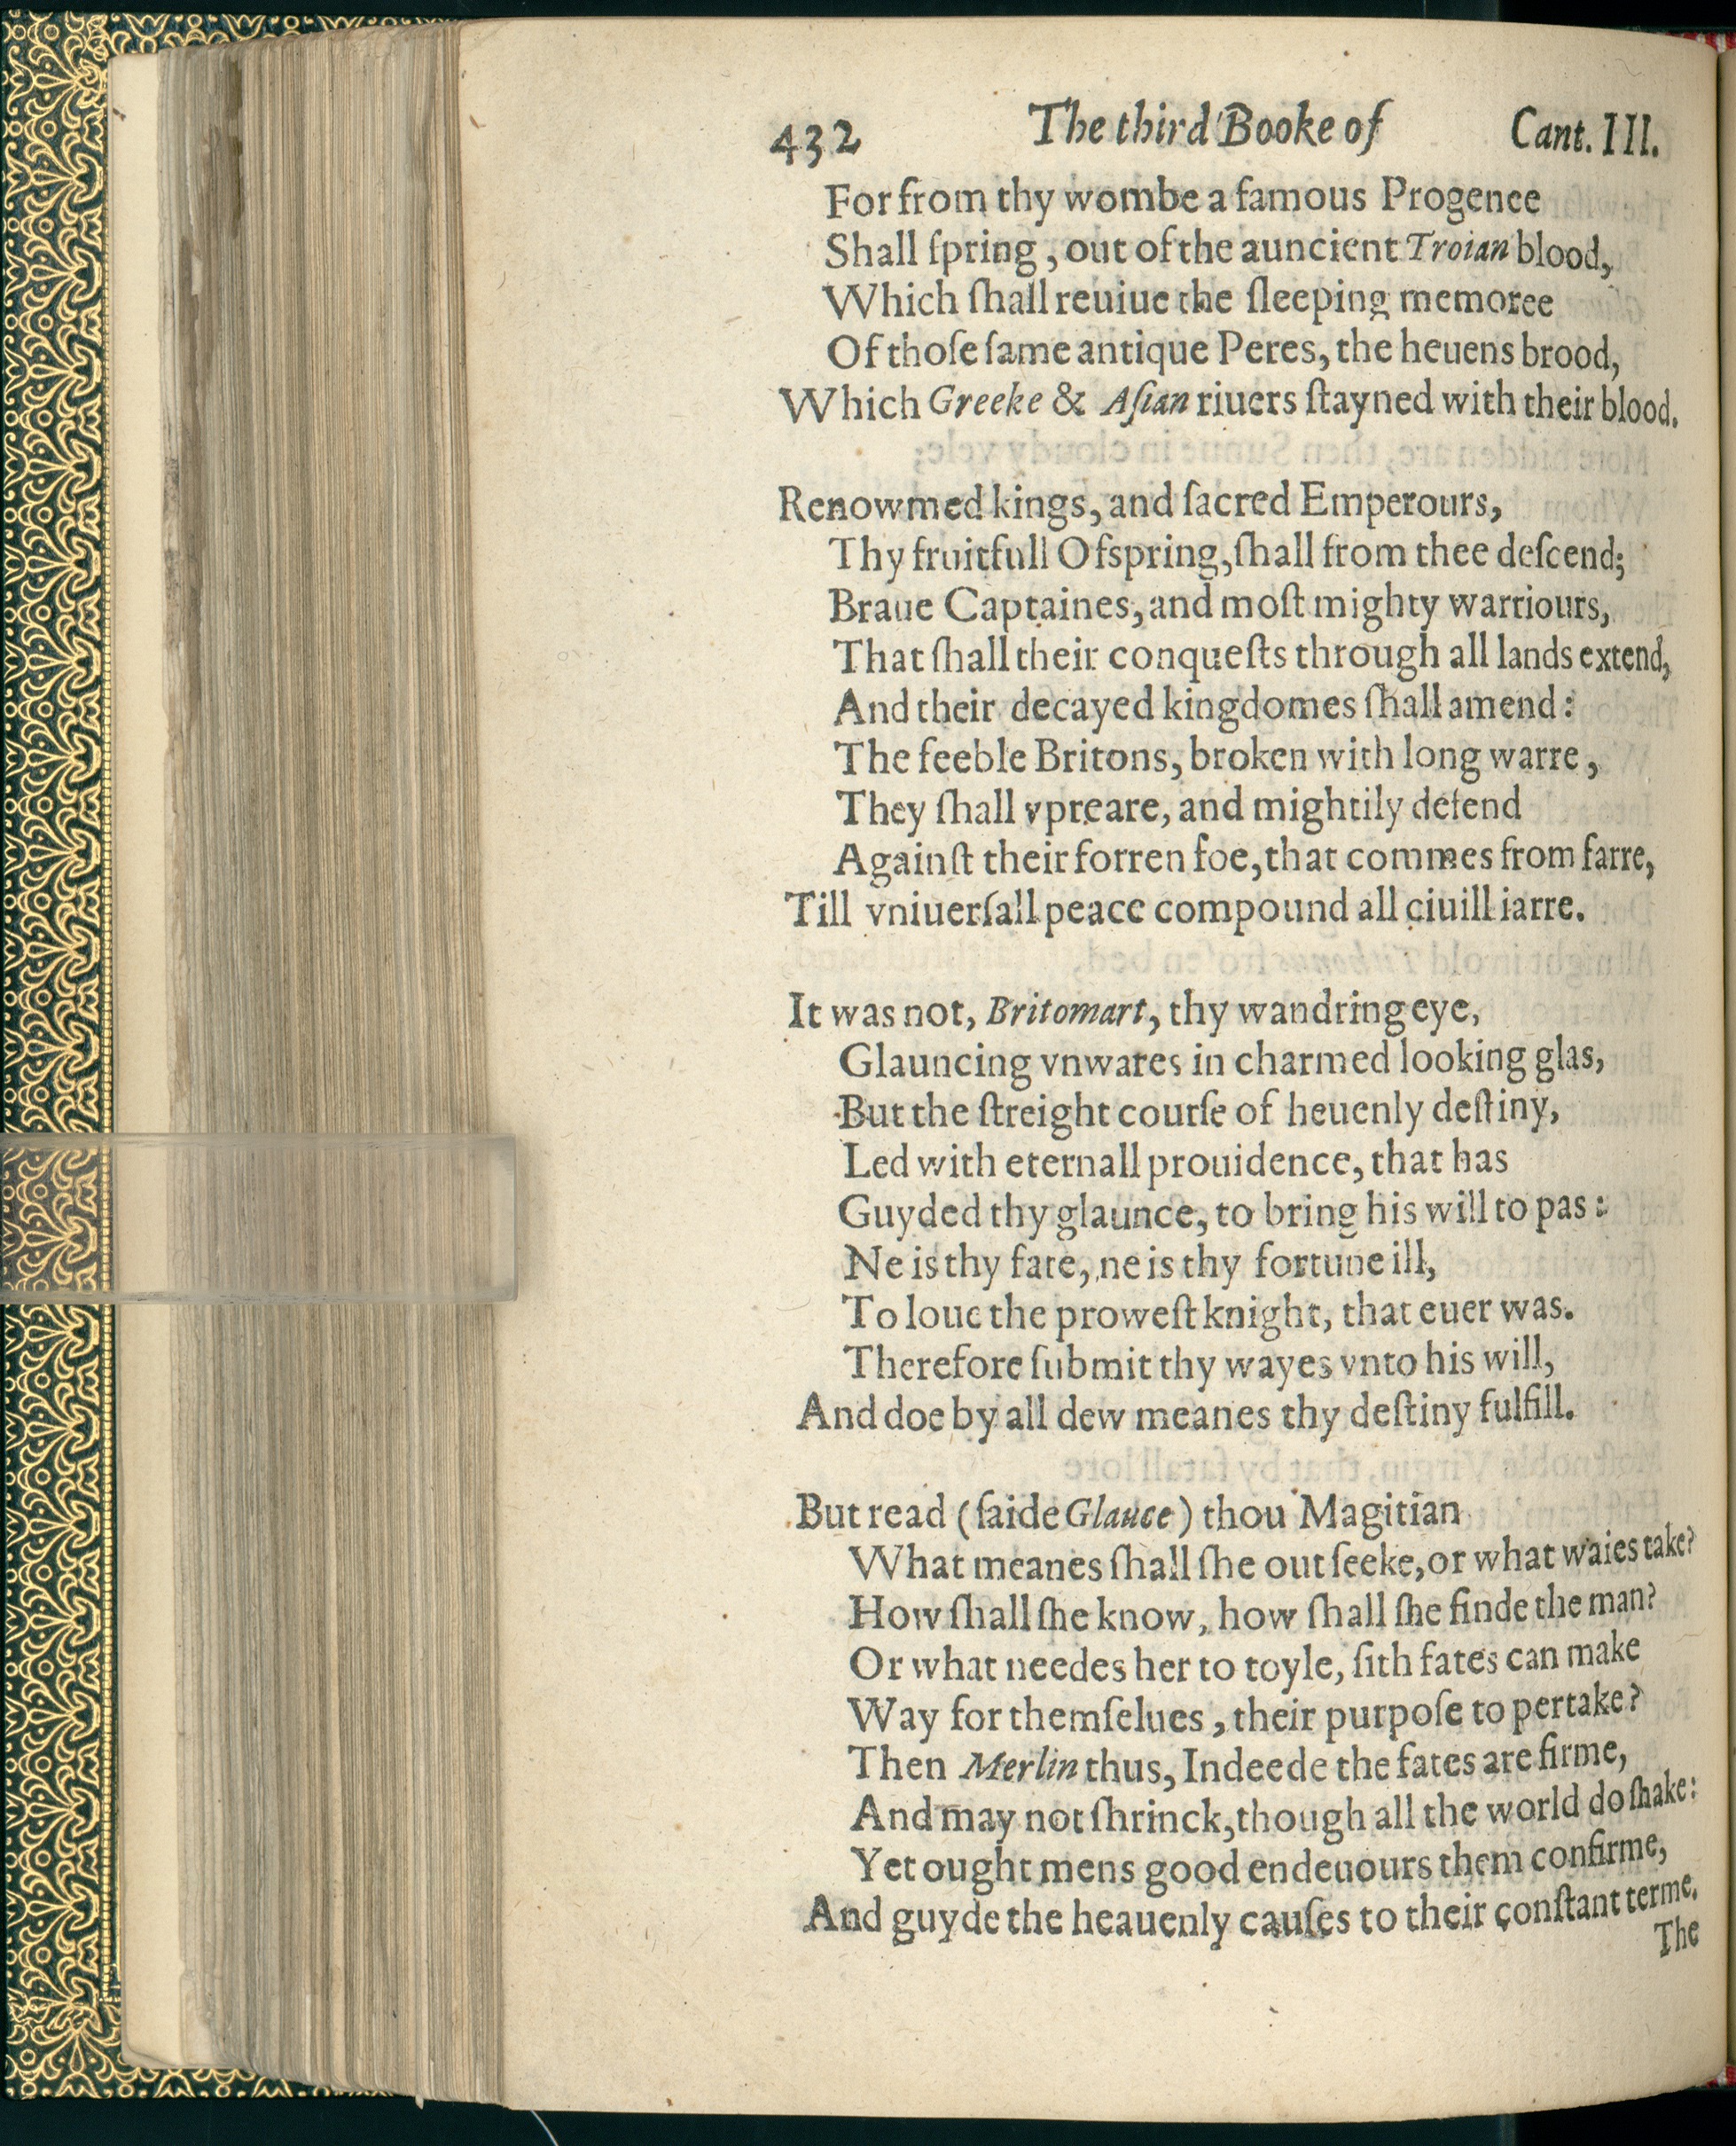 432 The third Booke of Cant. III.
For from thy wombe a famous Progenee
Shall ſpring, out of the auncient Troian blood,
Which ſhall reuiue the ſleeping memoree
Of thoſe ſame antique Peres, the heuens brood,
Which Greeke & Aſian riuers ſtayned with their blood.
Renowmed kings, and ſacred Emperours,
Thy fruitfull Ofspring, ſhall from thee deſcend;
Braue Captaines, and moſt mighty warriours,
That ſhall their conqueſts through all lands extend,
And their decayed kingdomes ſhall amend:
The feeble Britons, broken with long warre,
They ſhall vpreare, and mightily defend
Againſt their forren foe, that commes from farre,
Till vniuerſall peace compound all ciuill iarre.
It was not, Britomart, thy wandring eye,
Glauncing vnwares in charmed looking glas,
But the ſtreight courſe of heuenly deſtiny,
Led with eternall prouidence, that has
Guyded thy glaunce, to bring his will to pas:
Ne is thy fate, ne is thy fortune ill,
To loue the proweſt knight, that euer was.
Therefore ſubmit thy wayes vnto his will,
And doe by all dew meanes thy deſtiny fulfill.
But read (ſaide Glauce) thou Magitian
What meanes ſhall ſhe out ſeeke, or what waies take?
How ſhall ſhe know, how ſhall ſhe finde the man?
Or what needes her to toyle, ſith fates can make
Way for themſelues, their purpoſe to pertake?
Then Merlin thus, Indeede the fates are firme,
And may not ſhrinck, though all the world do ſhake:
Yet ought mens good endeuours them confirme,
And guyde the heauenly cauſes to their conſtant terme.
The